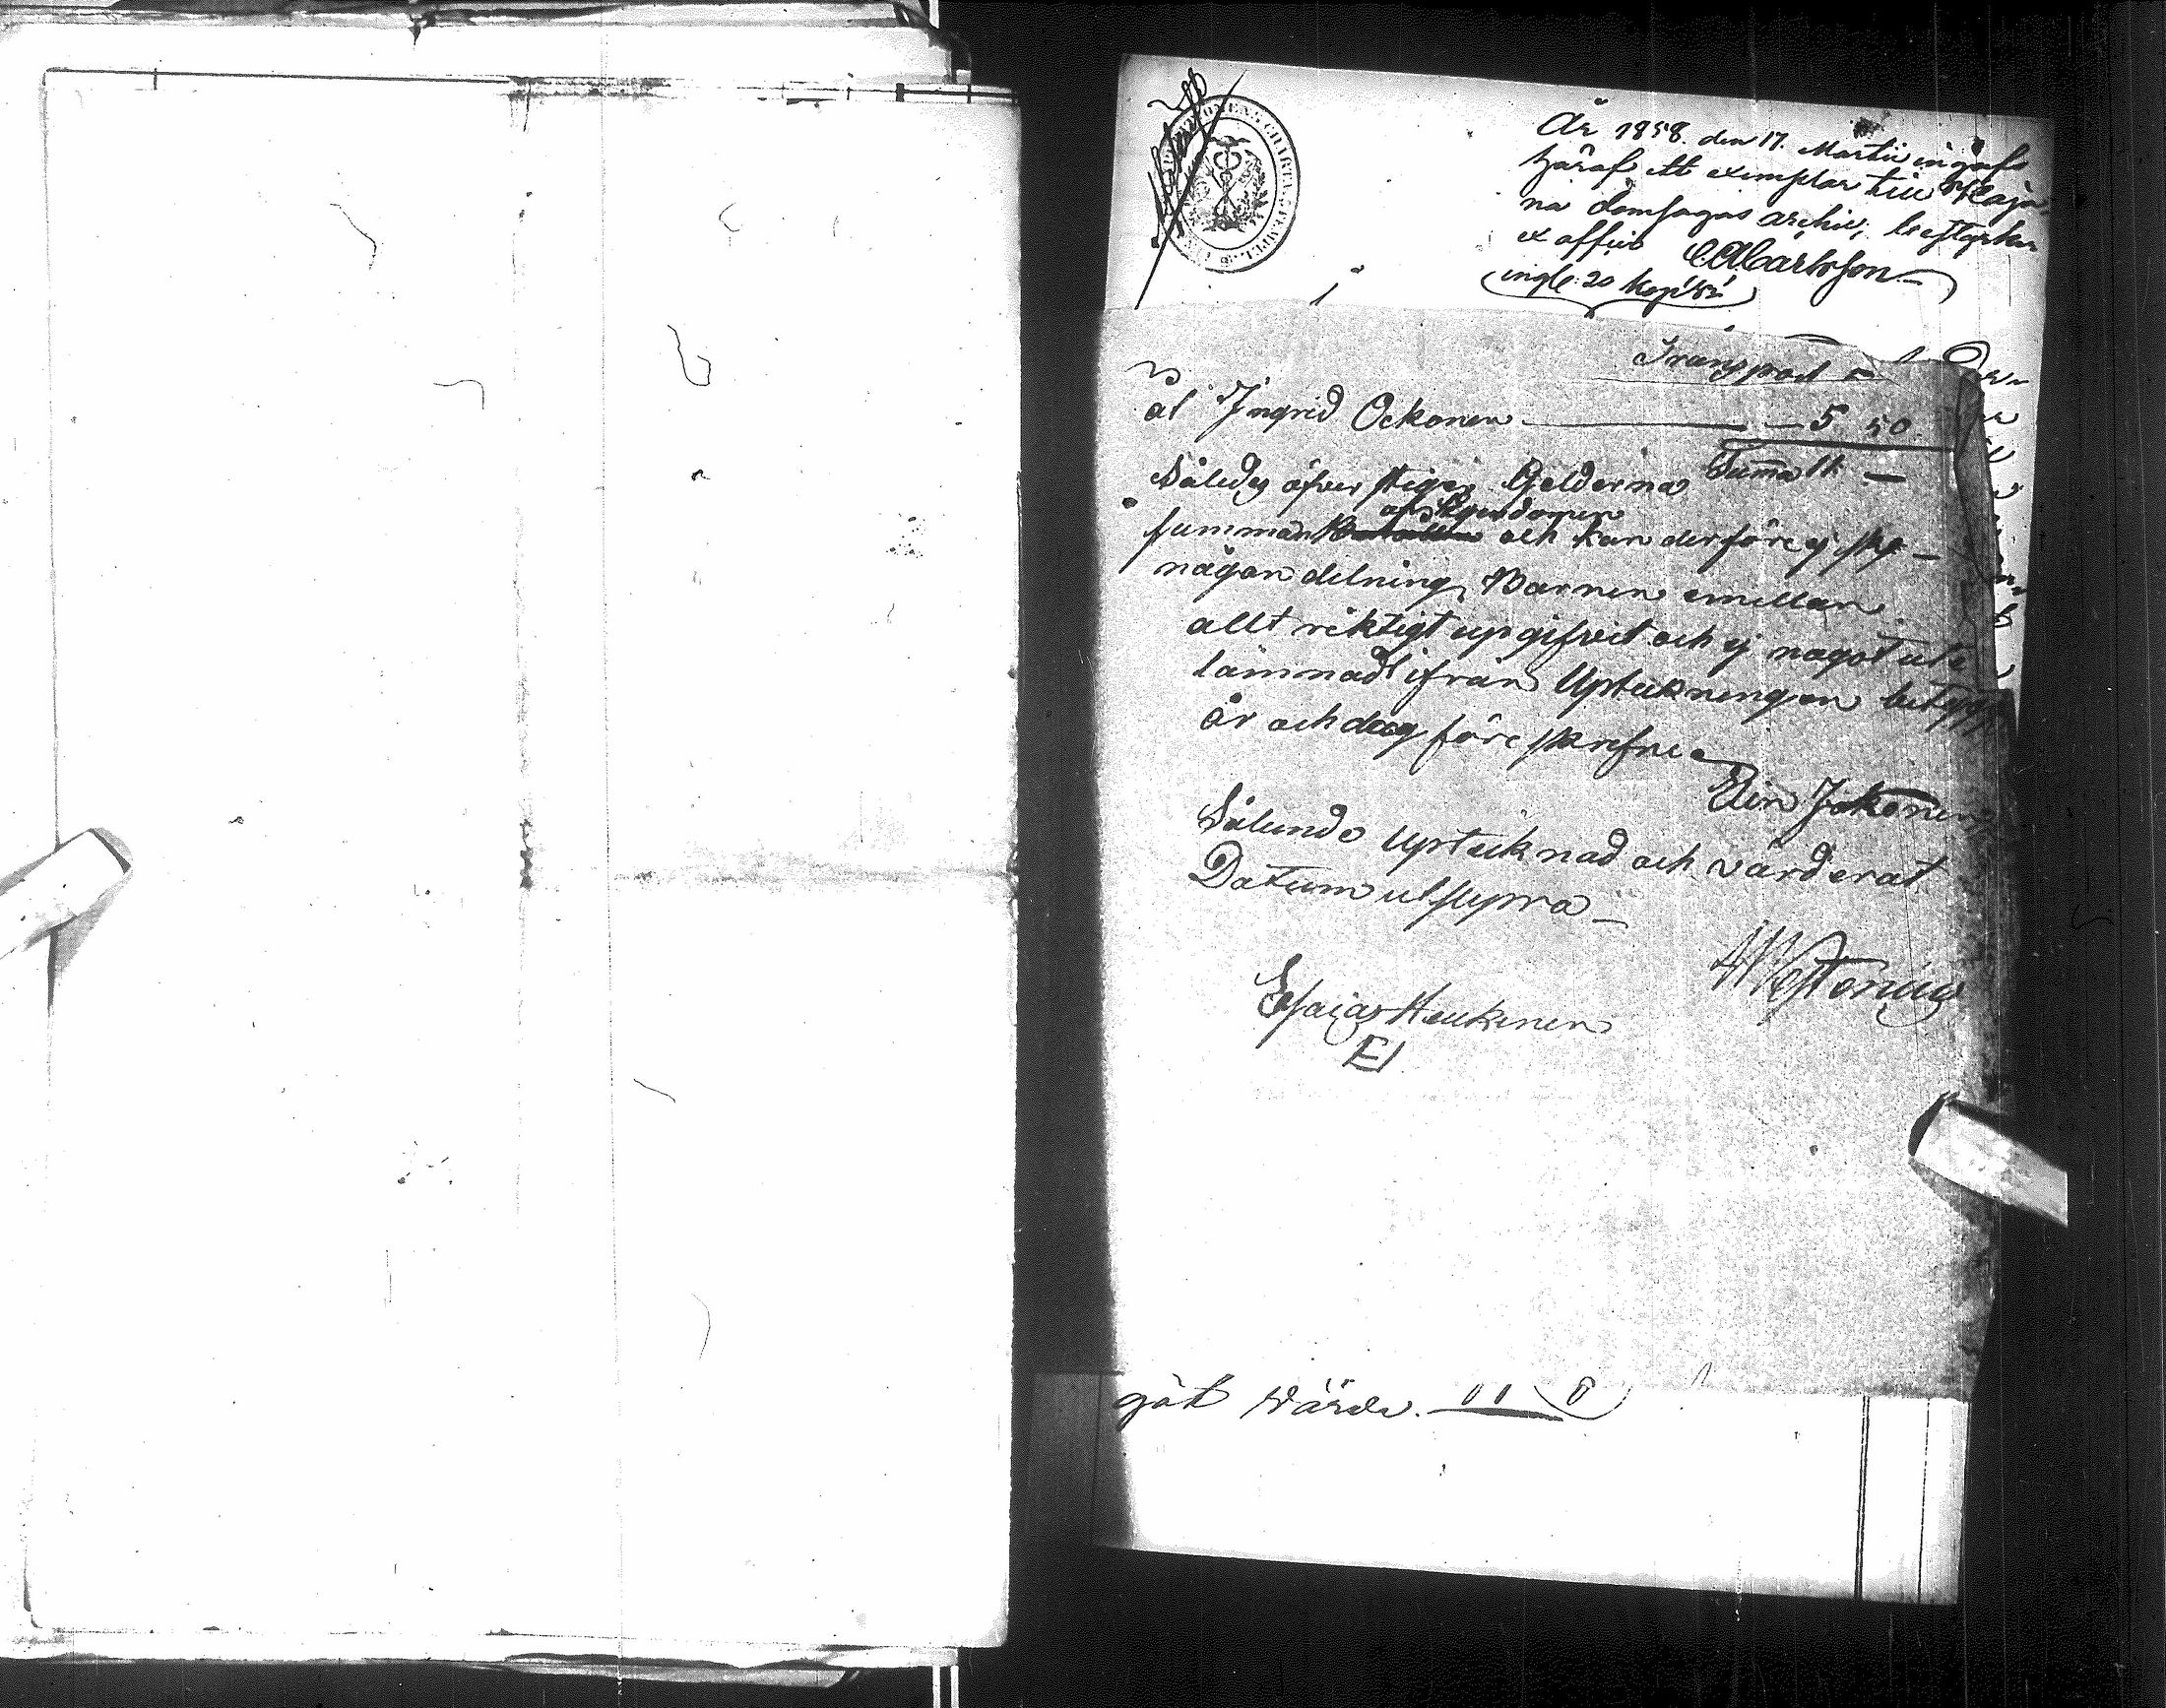 År 1858. den 17. Martii ingafs
häraf ett exemplar till Kaja-
na domsagas archiv; bestyrker
ex officio CACarlsson
ingl: 20 kop. S:r
CHARTA
Transport
åt Ingrid Ockonen — 5 50
Suma 11 —
Således öfver stiger Gälderna
af Egendomen
summan och kan derföre ej ske
någon delning Barnen emellan
allt riktigt upgifvit och ej något ute
lämnadt ifrån Uptekningen betygar
år och dagföre skrefne
Elin Jokonen
Sålunde Upteknad och värderat
Datum utsupra
Westonius
Esaias Heukinen
E
gåt värde.